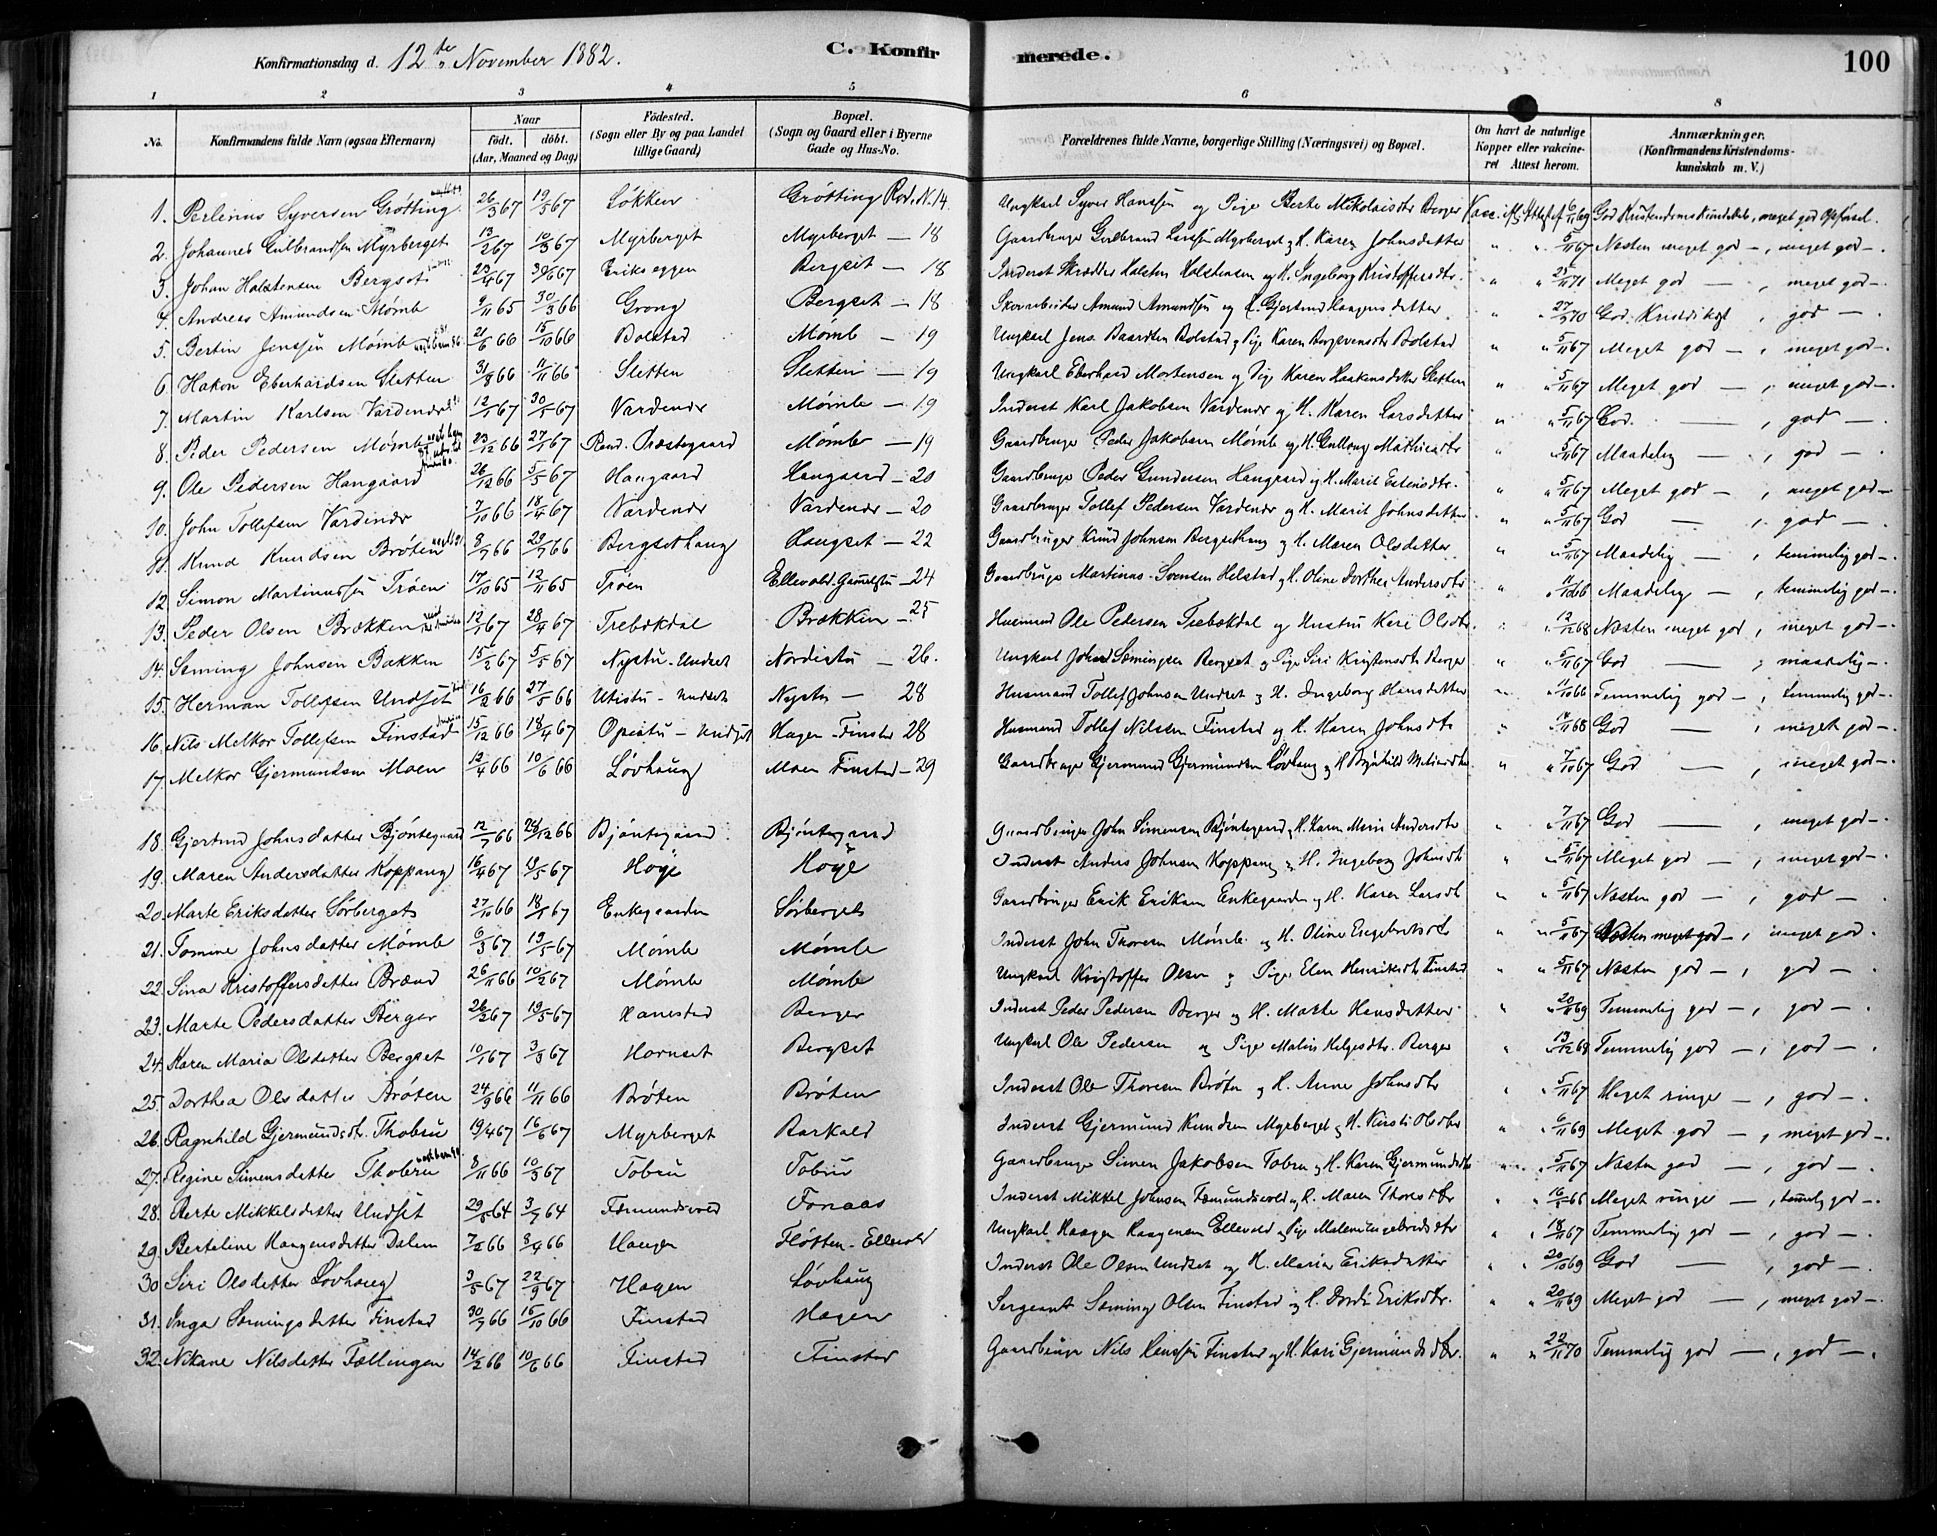 Konfirmationsdag d. 12te November 1882. C. Konfirmerede. 100
1 2 3 4 5 6 8
No. Konfirmandens fulde Navn (ogsaa Efternavn) Naar født. døbt. (Aar, Maaned og Dag) Fødested. (Sogn eller By og paa Landet tillige Gaard) Bopæl. (Sogn og Gaard eller i Byerne Gade og Hus-No. Forældrenes fulde Navne, borgerlige Stilling (Næringsvei) og Bopæl. Om havt de naturlige Kopper eller vakcineret Attest herom. Anmærkninger. (Konfirmandens Kristendomskundskab m. V.)
1. Perlinus Syversen Grøtting 26/3 67 19/5 67 Løkken Grøtting Rod. N. 14. Ungkarl Syver Hanssen og Pige Berte Mikolaisdtr Berger 6/11 69 God Kristendomskundskab, meget god Opførsel.
2. Johannes Gulbrandsen Myrberget 13/2 67 10/3 67 Myrberget Myrberget — 18 Gaardbruger Gulbrand Larssen Myrberget og H. Karen Johnsdatter " " 5/11 67 Næsten meget god —, meget god —.
3. Johan Halstensen Bergset 23/4 67 30/6 67 Erikseggen Bergset — 18 Inderst Skrædder Halsten Halstensen og H. Ingeborg Kristoffersdtr. " " 25/11 71 Meget god —, meget god —.
4. Andreas Amundsen Mømb 9/11 65 30/3 66 Grong Bergset — 18 Skomrbeider Amund Amundsen og H. Gjertrud Haagensdatter " " 27/9 70 God Kristdskst, god —
5. Bertin Jenssen Mømb 21/6 66 15/10 66 Bolstad Mømb — 19 Ungkarl Jens Baardsen Bolstad og Pige Karen Bolstad " " 5/11 67 Meget god —, meget god —.
6. Hakon Eberhardsen Sletten 31/8 66 11/11 66 Sletten Sletten — 19 Ungkarl Eberhard Mortensen og Pige Karen Haakensdatter Sletten " " 5/11 67 Meget god —, meget god —.
7. Martin Karlsen Vardenær 12/1 67 30/5 67 Vardenær Mømb — 19 Inderst Karl Jakobsen Vardenær og H. Karen Larsdatter " " 5/11 67 God —, god —
8. Peder Pedersen Mømb 23/12 66 27/1 67 Rend. Præstegaard Mømb — 19 Gaardbruger Peder Jakobsen Mømb og H. Gullaug Mathiasdtr " " 5/11 67 Maadelig —, god —
9. Ole Pedersen Haugaard 26/12 66 5/5 67 Haugaard Haugaard — 20 Gaardbruger Peder Gundersen Haugaard og H. Marit Estensdtr. " " 5/11 67 Meget god —, meget god —
10. John Tollefsen Vardenær 7/10 66 18/4 67 Vardenær Vardenær — 20 Gaardbruger Tollef Pedersen Vardenær og H. Marit Johnsdatter " " 5/11 67 God —, god —
11. Knud Knudsen Brøten 8/7 66 29/7 66 Bergsethaug Haugset — 22 Gaardbruger Knud Johnsen Bergsethaug og H. Maren Olsdatter " " 5/11 67 Maadelig —, temmelig god —.
12. Simon Martinussen Trøen 17/10 65 12/11 65 Trøen Ellevold — 24 Gaardbruger Martinus Svensen Helstad og H. Oline Dorthea Andersdtr " " 11/10 66 Maadelig —, temmelig god —.
13. Peder Olsen Brækken 12/1 67 28/4 67 Trebækdal Brækken — 25 Husmand Ole Pedersen Trebækdal og Hustru Kari Olsdtr. " " 12/12 68 Næsten meget god, meget god —.
14. Seming Johnsen Bakken 15/2 67 5/5 67 Nystu-Undset Nordistu — 26. Ungkarl John Semingsen Bergset og Pige Siri Kristensdtr Berger " " 5/11 67 God —, maadelig —.
15. Herman Tollefsen Undset 16/2 66 27/5 66 Utistu - Undset Nystu — 28 Husmand Tollef Johnsen Undset og H. Ingeborg Hansdatter " " 11/10 66 Temmelig god —, temmelig god —.
16. Nils Melkor Tollefsen Finstad 15/12 66 18/4 67 Opistu - Undset Hagen-Finstad 28 Husmand Tollef Nilsen Finstad og H. Karen Johnsdtr " " 14/11 68 God —, meget god —.
17. Melkor Gjermundsen Moen 13/4 66 10/6 66 Løvhaug Moen Finstad — 29 Gaardbruger Gjermund Gjermundsen Løvhaug og H. Brynhild " " 7/10 67 God —, meget god —.
18. Gjertrud Johnsdatter Bjøntegaard 12/7 66 26/12 66 Bjøntegaard Bjøntegaard Gaardbruger John Simensen Bjøntegaard og H. Karen Maria Andersdtr " 7/11 67 God —, meget god —.
19. Maren Andersdatter Koppang 16/4 67 19/5 67 Høye Høye Inderst Anders Johnsen Koppang og H. Ingeborg Johnsdtr " " 5/11 67 Meget god —, meget god —
20. Marte Eriksdatter Sørberget 27/10 66 18/1 67 Enkegaarden Sørberget Gaardbruger Erik Eriksen Enkegaarden og H. Karen Larsdtr " " 5/11 67 Næsten god —, god —
21. Tomine Johnsdatter Mømb 6/3 67 19/5 67 Mømb Mømb Inderst John Thoresen Mømb og H. Oline Engebretsdtr " " 5/11 67 Næsten meget god —, meget god.
22. Sina Kristoffersdatter Brænd 26/11 66 10/2 67 Mømb Mømb Ungkarl Kristoffer Olsen og Pige Elen Henriksdtr Finstad " " 5/11 67 Næsten god —, god —
23. Marte Pedersdatter Berger 26/2 67 19/5 67 Hanestad Berger Inderst Peder Pedersen Berger og H. Marte Hansdatter " " 20/11 69 Temmelig god —, god —.
24. Karen Maria Olsdatter Bergset 10/1 67 3/3 67 Hornset Bergset Ungkarl Ole Pedersen og Pige Malin Helgesdtr. Berger " " 13/12 68 Temmelig god —, god —.
25. Dorthea Olsdatter Brøten 24/9 66 11/11 66 Brøten Brøten Inderst Ole Thoresen Brøten og H. Anne Johnsdtr " " 5/11 67 Meget ringe —, god —.
26. Ragnhild Gjermundsdtr. Thobru 19/4 67 16/6 67 Myrberget Barkald Inderst Gjermund Knudsen Myrberget og H. Kirsti Olsdtr " " 6/11 69 Meget god —, meget god —.
27. Regine Simensdatter Thobru 8/11 66 10/3 67 Tobru Tobru Gaardbruger Simen Jakobsen Tobru og H. Karen Gjermundsdtr " " 5/11 67 Næsten god —, god —.
28. Berte Mikkelsdatter Undset 29/5 64 3/7 64 Fæmundsvold Fonaas Inderst Mikkel Johnsen Fæmundsvold og H. Maren Thoresdtr " " 16/5 65 Meget ringe —, temmelig god —.
29. Bertoline Haagensdatter Dalen 7/2 66 8/4 66 Haugen Fløtten-Ellevold Ungkarl Haagen Haagensen Ellevold og Pige Malene Engebretsdtr " " 18/11 67 Temmelig god —, god —.
30. Siri Olsdatter Løvhaug 3/5 67 22/9 67 Hagen Løvhaug Inderst Ole Olsen Undset og H. Maria Eriksdatter " " 20/10 69 God —, god —.
31. Inga Semingsdatter Finstad 30/7 66 15/10 66 Finstad Hagen Sergeant Seming Olsen Finstad og H. Dordi Eriksdtr. " " 20/11 69 Meget god —, meget god —.
32. Nikane Nilsdatter Fællingen 14/2 66 10/6 66 Finstad Finstad Gaardbruger Nils Hanssen Finstad og H. Kari Gjermundsdtr. " " 22/11 70 Temmelig god —, god —.